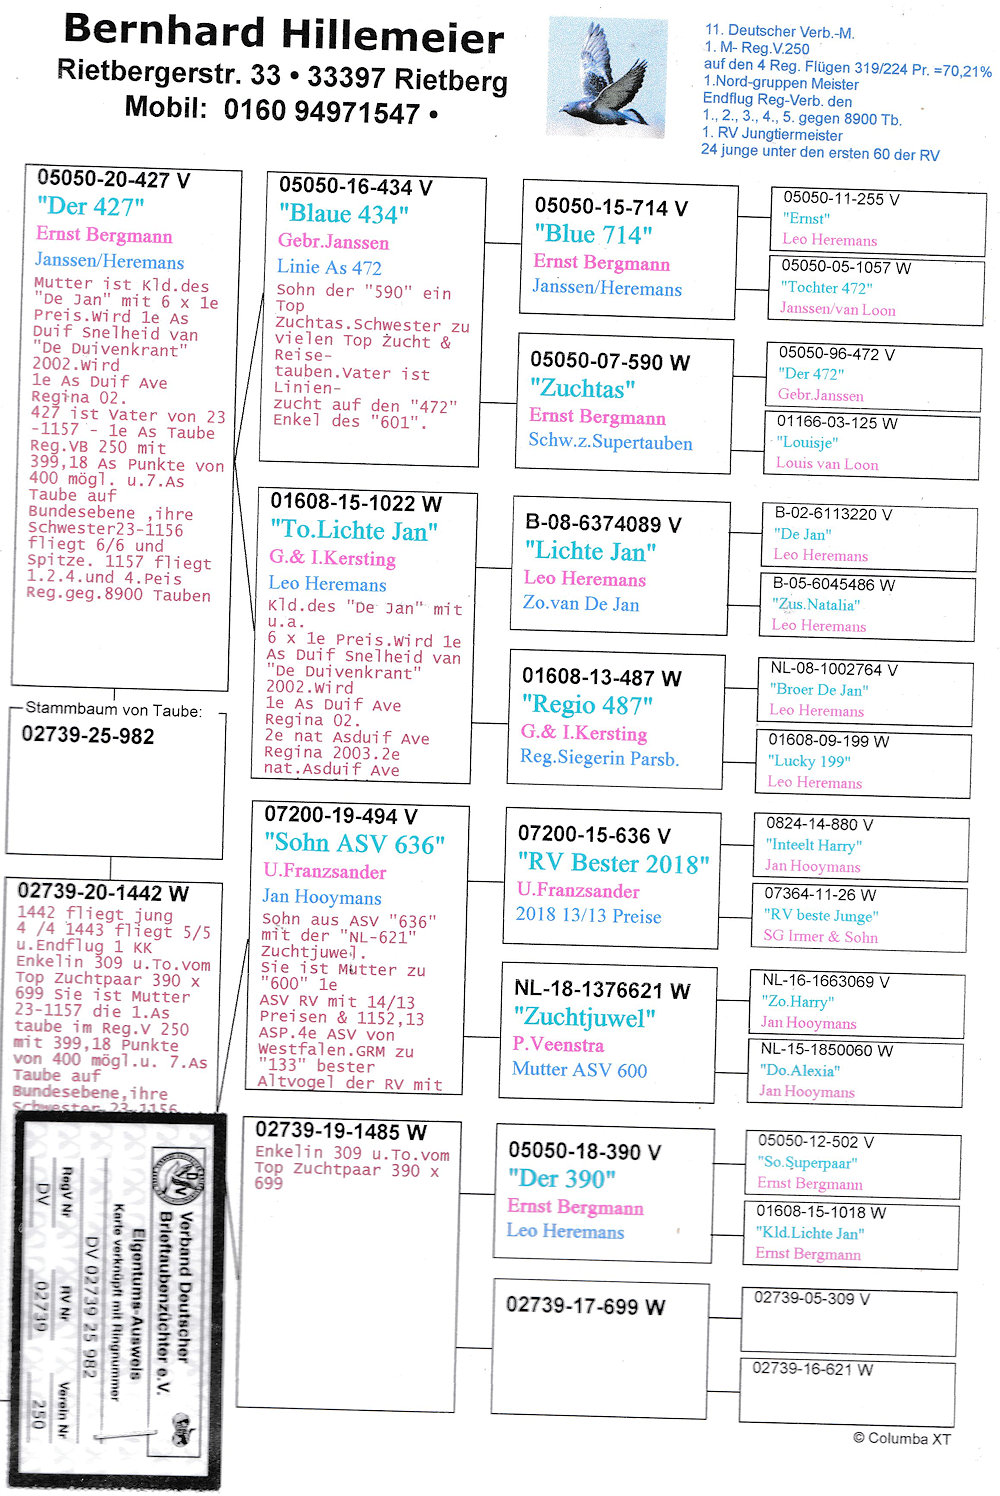 Bernhard Hillemeier
Rietbergerstr. 33 • 33397 Rietberg
Mobil: 0160 94971547 •
11. Deutscher Verb.-M.
1. M- Reg.V.250
auf den 4 Reg. Flügen 319/224 Pr. =70,21%
1.Nord-gruppen Meister
Endflug Reg-Verb. den
1., 2., 3., 4., 5. gegen 8900 Tb.
1. RV Jungtiermeister
24 junge unter den ersten 60 der RV
05050-20-427 V
"Der 427"
Ernst Bergmann
Janssen/Heremans
Mutter ist Kld.des
"De Jan" mit 6 x 1e
Preis.Wird 1e As
Duif Snelheid van
"De Duivenkrant"
2002.Wird
1e As Duif Ave
Regina 02.
427 ist Vater von 23
-1157 - 1e As Taube
Reg.VB 250 mit
399,18 As Punkte von
400 mögl. u.7.As
Taube auf
Bundesebene ,ihre
Schwester23-1156
fliegt 6/6 und
Spitze. 1157 fliegt
1.2.4.und 4.Peis
Reg.geg.8900 Tauben
Stammbaum von Taube:
02739-25-982
02739-20-1442 W
1442 fliegt jung
4 /4 1443 fliegt 5/5
u.Endflug 1 KK
Enkelin 309 u.To.vom
Top Zuchtpaar 390 x
699 Sie ist Mutter
23-1157 die 1.As
taube im Reg.V 250
mit 399,18 Punkte
von 400 mögl.u. 7.As
Taube auf
Bundesebene,ihre
Schwester 23-1156
05050-16-434 V
"Blaue 434"
Gebr.Janssen
Linie As 472
Sohn der "590" ein
Top
Zuchtas.Schwester zu
vielen Top Zucht &
Reise-
tauben.Vater ist
Linien-
zucht auf den "472"
Enkel des "601".
01608-15-1022 W
"To.Lichte Jan"
G.& I.Kersting
Leo Heremans
Kld.des "De Jan" mit
u.a.
6 x 1e Preis.Wird 1e
As Duif Snelheid van
"De Duivenkrant"
2002.Wird
1e As Duif Ave
Regina 02.
2e nat Asduif Ave
Regina 2003.2e
nat.Asduif Ave
07200-19-494 V
"Sohn ASV 636"
U.Franzsander
Jan Hooymans
Sohn aus ASV "636"
mit der "NL-621"
Zuchtjuwel.
Sie ist Mutter zu
"600" 1e
ASV RV mit 14/13
Preisen & 1152,13
ASP.4e ASV von
Westfalen.GRM zu
"133" bester
Altvogel der RV mit
02739-19-1485 W
Enkelin 309 u.To.vom
Top Zuchtpaar 390 x
699
05050-15-714 V
"Blue 714"
Ernst Bergmann
Janssen/Heremans
05050-07-590 W
"Zuchtas"
Ernst Bergmann
Schw.z.Supertauben
B-08-6374089 V
"Lichte Jan"
Leo Heremans
Zo.van De Jan
01608-13-487 W
"Regio 487"
G.& I.Kersting
Reg.Siegerin Parsb.
07200-15-636 V
"RV Bester 2018"
U.Franzsander
2018 13/13 Preise
NL-18-1376621 W
"Zuchtjuwel"
P.Veenstra
Mutter ASV 600
05050-18-390 V
"Der 390"
Ernst Bergmann
Leo Heremans
02739-17-699 W
05050-11-255 V
"Ernst"
Leo Heremans
05050-05-1057 W
"Tochter 472"
Janssen/van Loon
05050-96-472 V
"Der 472"
Gebr.Janssen
01166-03-125 W
"Louisje"
Louis van Loon
B-02-6113220 V
"De Jan"
Leo Heremans
B-05-6045486 W
"Zus.Natalia"
Leo Heremans
NL-08-1002764 V
"Broer De Jan"
Leo Heremans
01608-09-199 W
"Lucky 199"
Leo Heremans
0824-14-880 V
"Inteelt Harry"
Jan Hooymans
07364-11-26 W
"RV beste Junge"
SG Irmer & Sohn
NL-16-1663069 V
"Zo.Harry"
Jan Hooymans
NL-15-1850060 W
"Do.Alexia"
Jan Hooymans
05050-12-502 V
"So.Superpaar"
Ernst Bergmann
01608-15-1018 W
"Kld.Lichte Jan"
Ernst Bergmann
02739-05-309 V
02739-16-621 W
© Columba XT
Verband Deutscher
Brieftaubenzüchter e.V.
Eigentums-Ausweis
Karte verknüpft mit Ringnummer
DV 02739 25 982
RegV Nr
RV Nr
Verein Nr
DV
02739
250